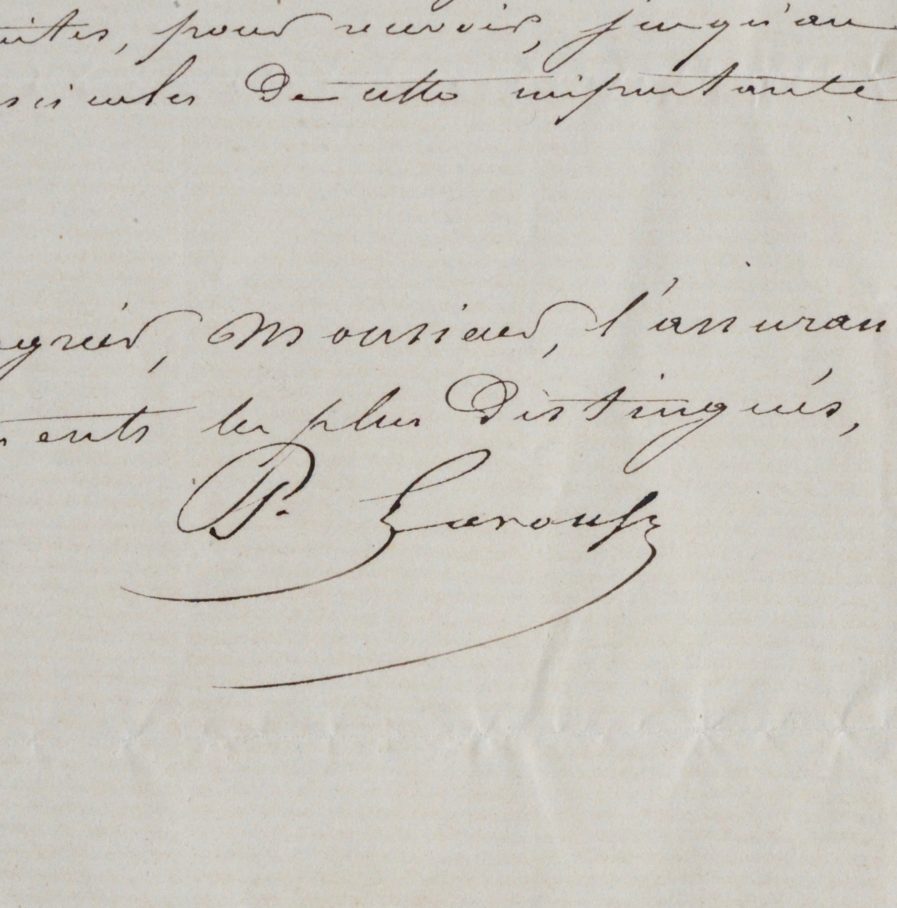 uites, pour recevoir, jusqu'au
scicules de cette importante
agréer, Monsieur, l'assuran
ments les plus distingués,
P. Larousse